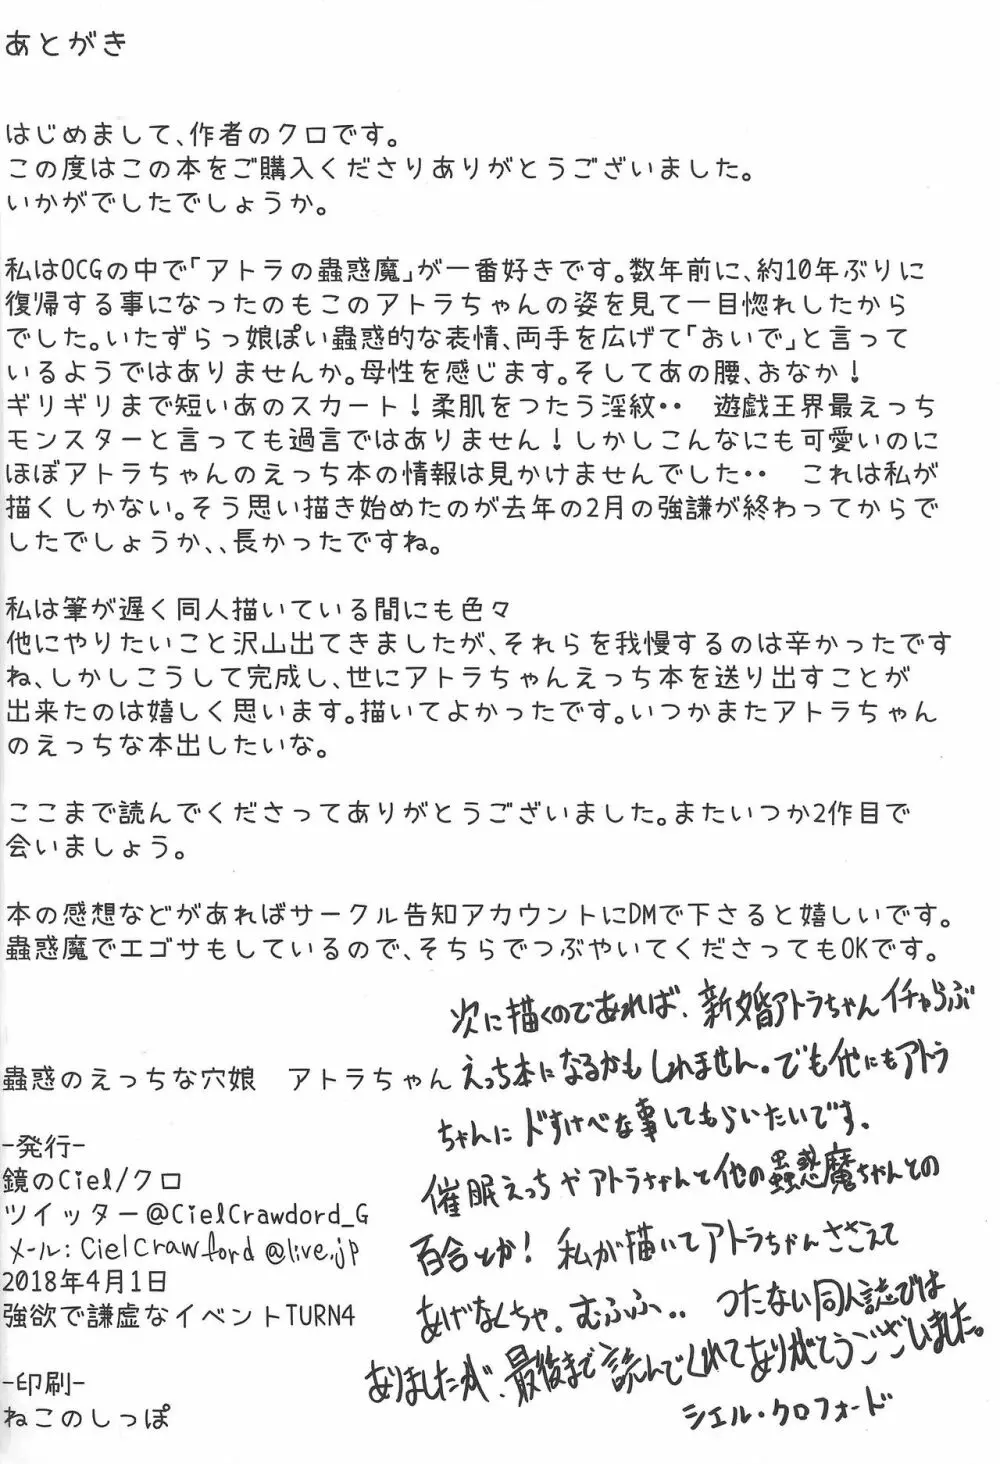 あとがき
はじめまして、作者のクロです。
この度はこの本をご購入くださりありがとうございました。
いかがでしたでしょうか。
私はOCGの中で「アトラの蟲惑魔」が一番好きです。数年前に、約10年ぶりに
復帰する事になったのもこのアトラちゃんの姿を見て一目惚れしたから
でした。いたずらっ娘ぽい蟲惑的な表情、両手を広げて「おいで」と言って
いるようではありませんか。母性を感じます。そしてあの腰、おなか！
ギリギリまで短いあのスカート！柔肌をつたう淫紋・・　遊戯王界最えっち
モンスターと言っても過言ではありません！しかしこんなにも可愛いのに
ほぼアトラちゃんのえっち本の情報は見かけませんでした・・　これは私が
描くしかない。そう思い描き始めたのが去年の2月の強謙が終わってからで
したでしょうか、、長かったですね。
私は筆が遅く同人描いている間にも色々
他にやりたいこと沢山出てきましたが、それらを我慢するのは辛かったです
ね、しかしこうして完成し、世にアトラちゃんえっち本を送り出すことが
出来たのは嬉しく思います。描いてよかったです。いつかまたアトラちゃん
のえっちな本出したいな。
ここまで読んでくださってありがとうございました。またいつか2作目で
会いましょう。
本の感想などがあればサークル告知アカウントにDMで下さると嬉しいです。
蟲惑魔でエゴサもしているので、そちらでつぶやいてくださってもOKです。
次に描くのであれば、新婚アトラちゃんイチャらぶ
えっち本になるかもしれません。でも他にもアトラ
ちゃんにドすけべな事してもらいたいです。
催眠えっちやアトラちゃんと他の蟲惑魔ちゃんとの
百合とか！私が描いてアトラちゃんささえて
あげなくちゃ。むふふ．．つたない同人誌では
ありましたが、最後まで読んでくれてありがとうございました。
シエル・クロフォード
蟲惑のえっちな穴娘　アトラちゃん
-発行-
鏡のCiel/クロ
ツイッター@CielCrawdord_G
メール：CielCrawford@live.jp
2018年4月1日
強欲で謙虚なイベントTURN4
-印刷-
ねこのしっぽ